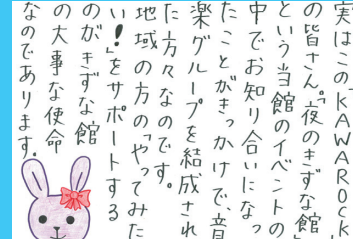 実はこのKAWAROCK
の皆さん。「夜のきずな館」
という当館のイベントの
中でお知り合いになっ
たことがきっかけで、音
楽グループを結成され
た方々なのです。
地域の方の「やってみた
い!」をサポートする
のがきずな館
の大事な使命
なのであります。